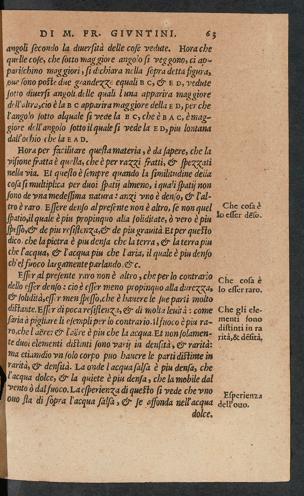 DI M. FR. GIVNTINI. 63
angoli secondo la diuersità delle cose vedute. Hora che
quelle cose, che sotto maggiore angolo si veggono, ci ap-
parischino maggiori, si dichiara nella sopra detta figura,
oue sono poste due grandezze equali B C, & E D, vedute
sotto diuersi angoli delle quali l'una apparira maggiore
dell'altra, cio è la B C apparira maggiore della E D, per che
l'angolo sotto alquale si vede la B C, che è B A C, è mag-
giore dell'angolo sotto il quale si vede la E D, piu lontana
dall'occhio che la E A D.
Hora per facilitare questa materia, è da sapere, che la
visione fratta è quella, che è per razzi fratti, & spezzati
nella via. Et questo è sempre quando la similitudine della
cosa si multiplica per duoi spatij almeno, i quai spatij non
sono de vna medesima natura: anzi vno è denso, & l'al-
tro è raro. Essere denso al presente non è altro, se non quel
spatio, il quale è piu propinquo alla soliditate, ò vero è piu
spesso, & de piu resistenza, & de piu grauità. Et per questo
dico. che la pietra è piu densa che la terra, & la terra piu
che l'acqua, & l'acqua piu che l'aria, il quale è piu denso
ch'el fuoco largamente parlando. & c.
Che cosa è
lo esser dēso.
Esser al presente raro non è altro, che per lo contrario
dello esser denso: cio è esser meno propinquo alla durezza,
& solidità, esser men spesso, che è hauere le sue parti molto
distante. Esser di poca resistenza, & di molta leuità: come
saria à pigliare li esempli per lo contrario. Il fuoco è piu ra-
ro, che l'aere: & l'aere è piu che la acqua. Et non solamen-
te duoi elementi distinti sono varij in densità, & rarità:
ma etiamdio vn solo corpo puo hauere le parti distinte in
rarità, & densità. La onde l'acqua salsa è piu densa, che
l'acqua dolce, & la quiete è piu densa, che la mobile dal
vento ò dal fuoco. La esperienza di questo si vede che vno
ouo sta di sopra l'acqua salsa, & se affonda nell'acqua
dolce.
Che cosa è
lo esser raro.
Che gli ele-
menti sono
distinti in ra
rità, & dēsità.
Esperienza
dell'ouo.